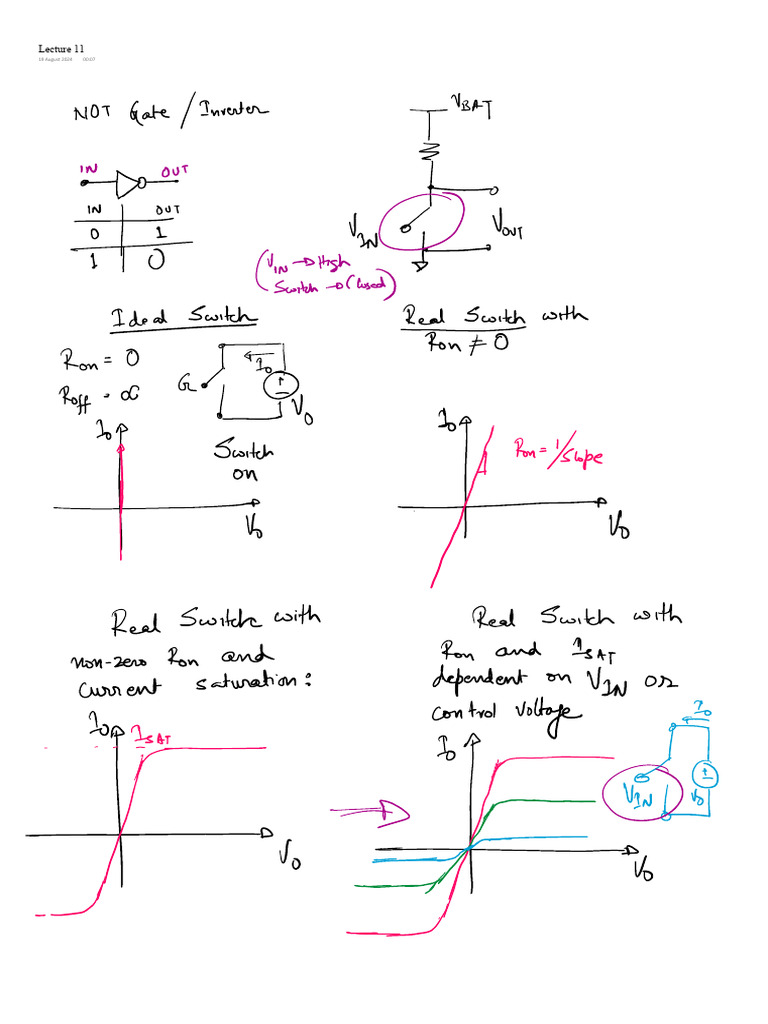 Lecture 11
18 August 2024 00:07
NOT Gate / Inverter
IN OUT
IN OUT
0 1
1 0
VBAT
VIN
VOUT
(VIN → High
Switch → Closed)
Ideal Switch
Ron = 0
Roff = ∞
G
Io
+
-
Vo
Switch
on
Io
Vo
Real Switch with
Ron ≠ 0
Io
Ron = 1/slope
Vo
Real Switch with
non-zero Ron and
current saturation:
Io
ISAT
Vo
Real Switch with
Ron and ISAT
dependent on VIN or
control voltage
Io
Vo
Io
VIN
+
-
Vo